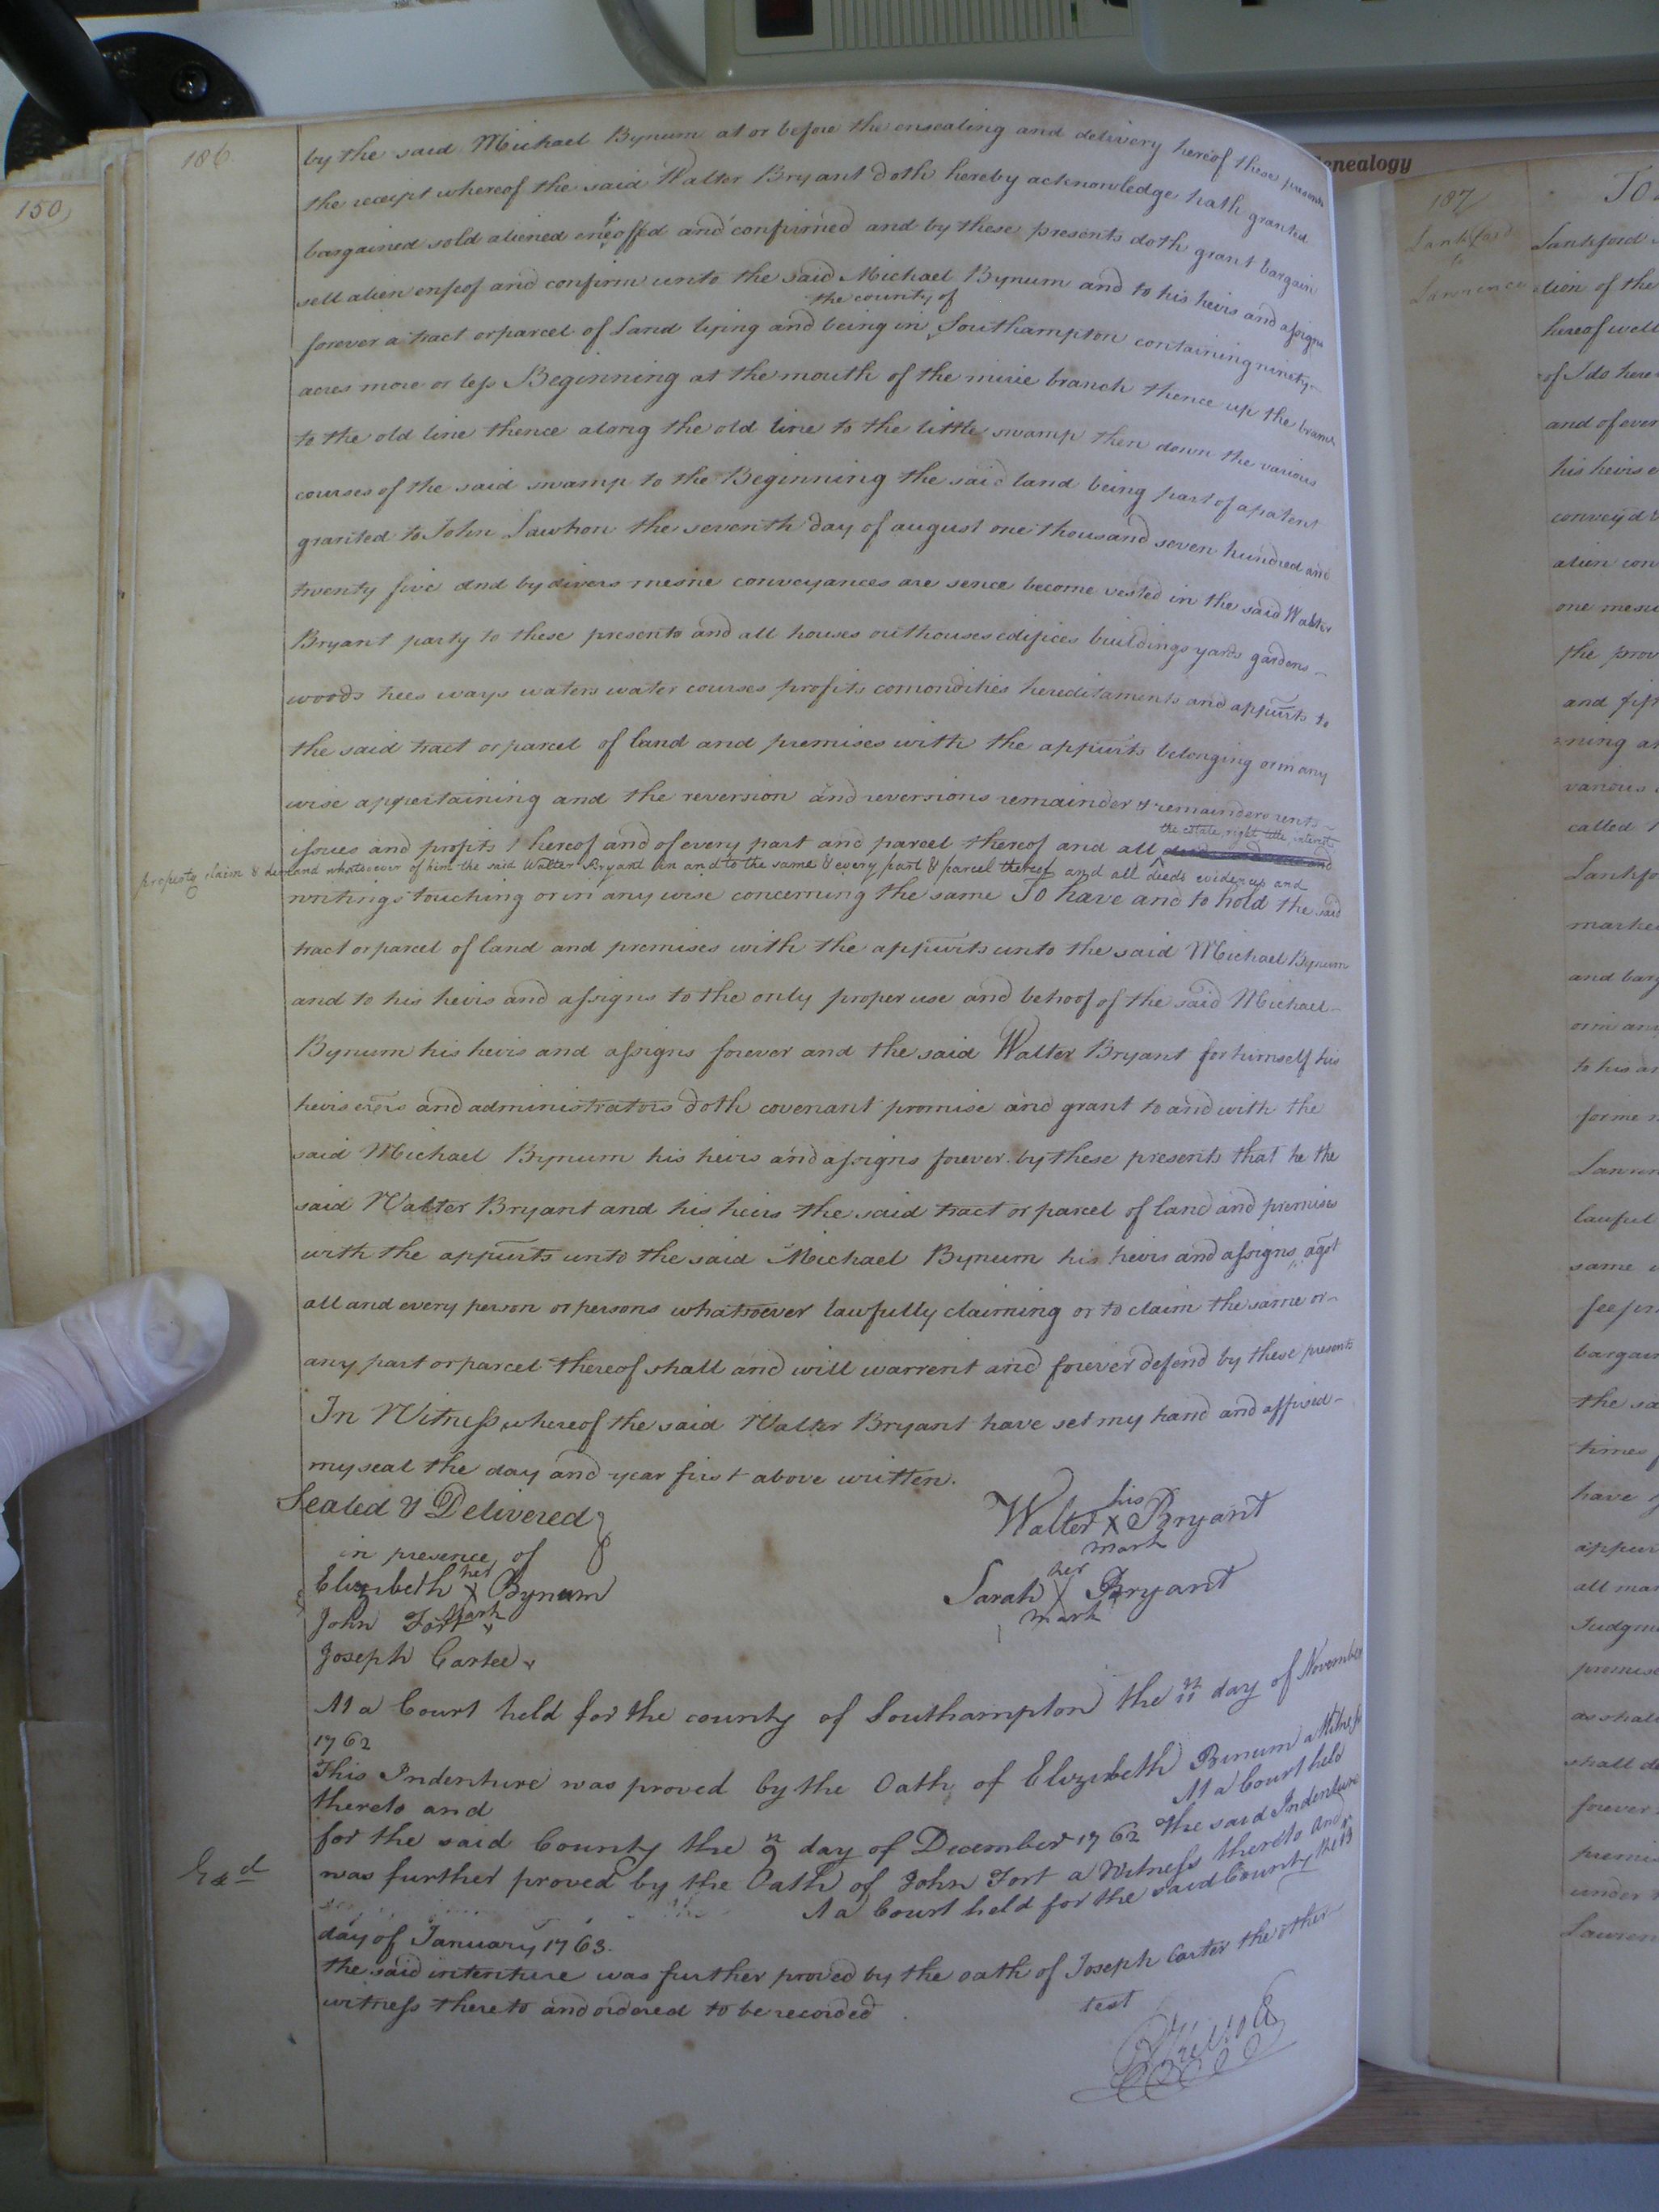 186.
by the said Michael Bynum at or before the ensealing and delivery hereof these presents
the receipt whereof the said Walter Bryant doth hereby acknowledge hath granted
bargained sold aliened eneoffd and confirmed and by these presents doth grant bargain
sell alien enfeof and confirm unto the said Michael Bynum and to his heirs and assigns
the county of
forever a tract or parcel of Land lying and being in Southampton containing ninety
acres more or less Beginning at the mouth of the mirie branch thence up the branch
to the old line thence along the old line to the little swamp then down the various
courses of the said swamp to the Beginning the said land being part of a patent
granted to John Lawhon the seventh day of august one thousand seven hundred and
twenty five and by divers mesne conveyances are sence become vested in the said Walter
Bryant party to these presents and all houses outhouses edifices buildings yards gardens
woods trees ways waters water courses profits comondities hereditaments and appurts to
the said tract or parcel of land and premises with the appurts belonging or in any
wise appertaining and the reversion and reversions remainder & remainders rents
the estate, right title, interest
issues and profits hereof and of every part and parcel thereof and all
property claim & demand whatsoever of him the said Walter Bryant in and to the same & every part & parcel thereof and all deeds evidences and
writings touching or in any wise concerning the same To have and to hold the said
tract or parcel of land and premises with the appurts unto the said Michael Bynum
and to his heirs and assigns to the only proper use and behoof of the said Michael
Bynum his heirs and assigns forever and the said Walter Bryant for himself his
heirs exrs and administrators doth covenant promise and grant to and with the
said Michael Bynum his heirs and assigns forever by these presents that he the
said Walter Bryant and his heirs the said tract or parcel of land and premises
with the appurts unto the said Michael Bynum his heirs and assigns agst
all and every person or persons whatsoever lawfully claiming or to claim the same or
any part or parcel thereof shall and will warrent and forever defend by these presents
In Witness whereof the said Walter Bryant have set my hand and affixed
my seal the day and year first above written.
Sealed & Delivered
in presence of
his
Walter X Bryant
mark
her
Elizabeth X Bynum
mark
her
Sarah X Bryant
mark
John Fort
Joseph Carter
At a Court held for the county of Southampton the 11th day of November
1762
This Indenture was proved by the Oath of Elizabeth Binum a Witness
thereto and
At a Court held
for the said County the 9th day of December 1762 the said Indenture
was further proved by the Oath of John Fort a Witness thereto And
Exd
At a Court held for the said County the 13
day of January 1763.
the said intenture was further proved by the oath of Joseph Carter the other
witness thereto and ordered to be recorded
test
150
enealogy
187
Lankford
to
Lawrence
Lankford
tion of the
hereof well
of I do here
and of ever
his heirs
convey'd
alien con
one mesu
the prov
ning
various
called
Lankfo
marke
and barg
or in any
to his
Lawren
lawful
same
bargain
the sa
times
have
appur
all man
Judgm
promise
as shall
shall d
forever
premi
under
Lawren